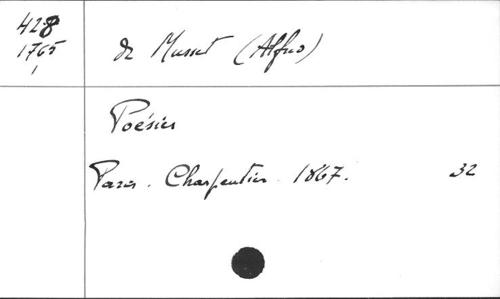 428
1765
1
de Musset (Alfred)
Poésies
Paris. Charpentier. 1867. 32